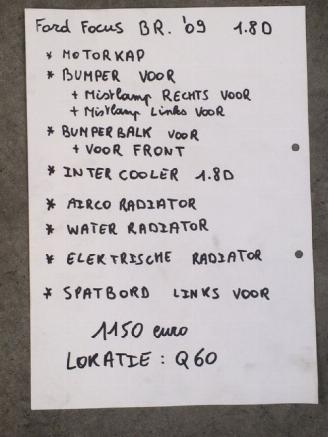 Ford Focus BR. '09 1.8D
* MOTORKAP
* BUMPER VOOR
+ Mistlamp RECHTS VOOR
+ Mistlamp Links VOOR
* BUMPERBALK VOOR
+ VOOR FRONT
* INTERCOOLER 1.8D
* AIRCO RADIATOR
* WATER RADIATOR
* ELEKTRISCHE RADIATOR
* SPATBORD LINKS VOOR
1150 euro
LOKATIE : Q60